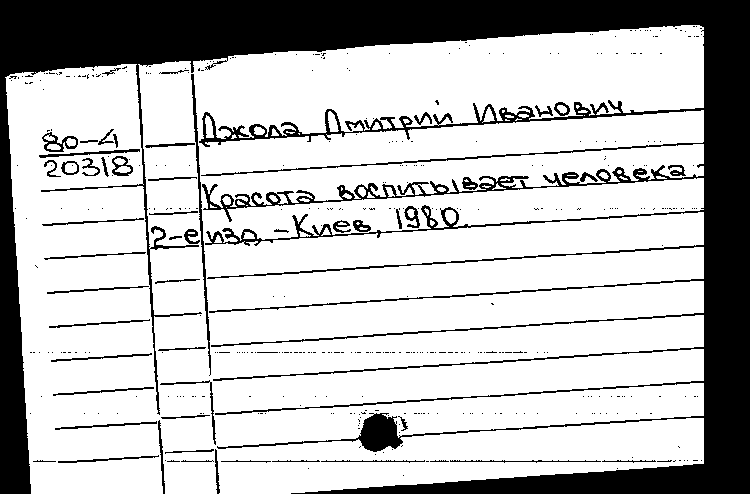 80-4
20318
Джола, Дмитрий Иванович.
Красота воспитывает человека.-
2-е изд.-Киев, 1980.